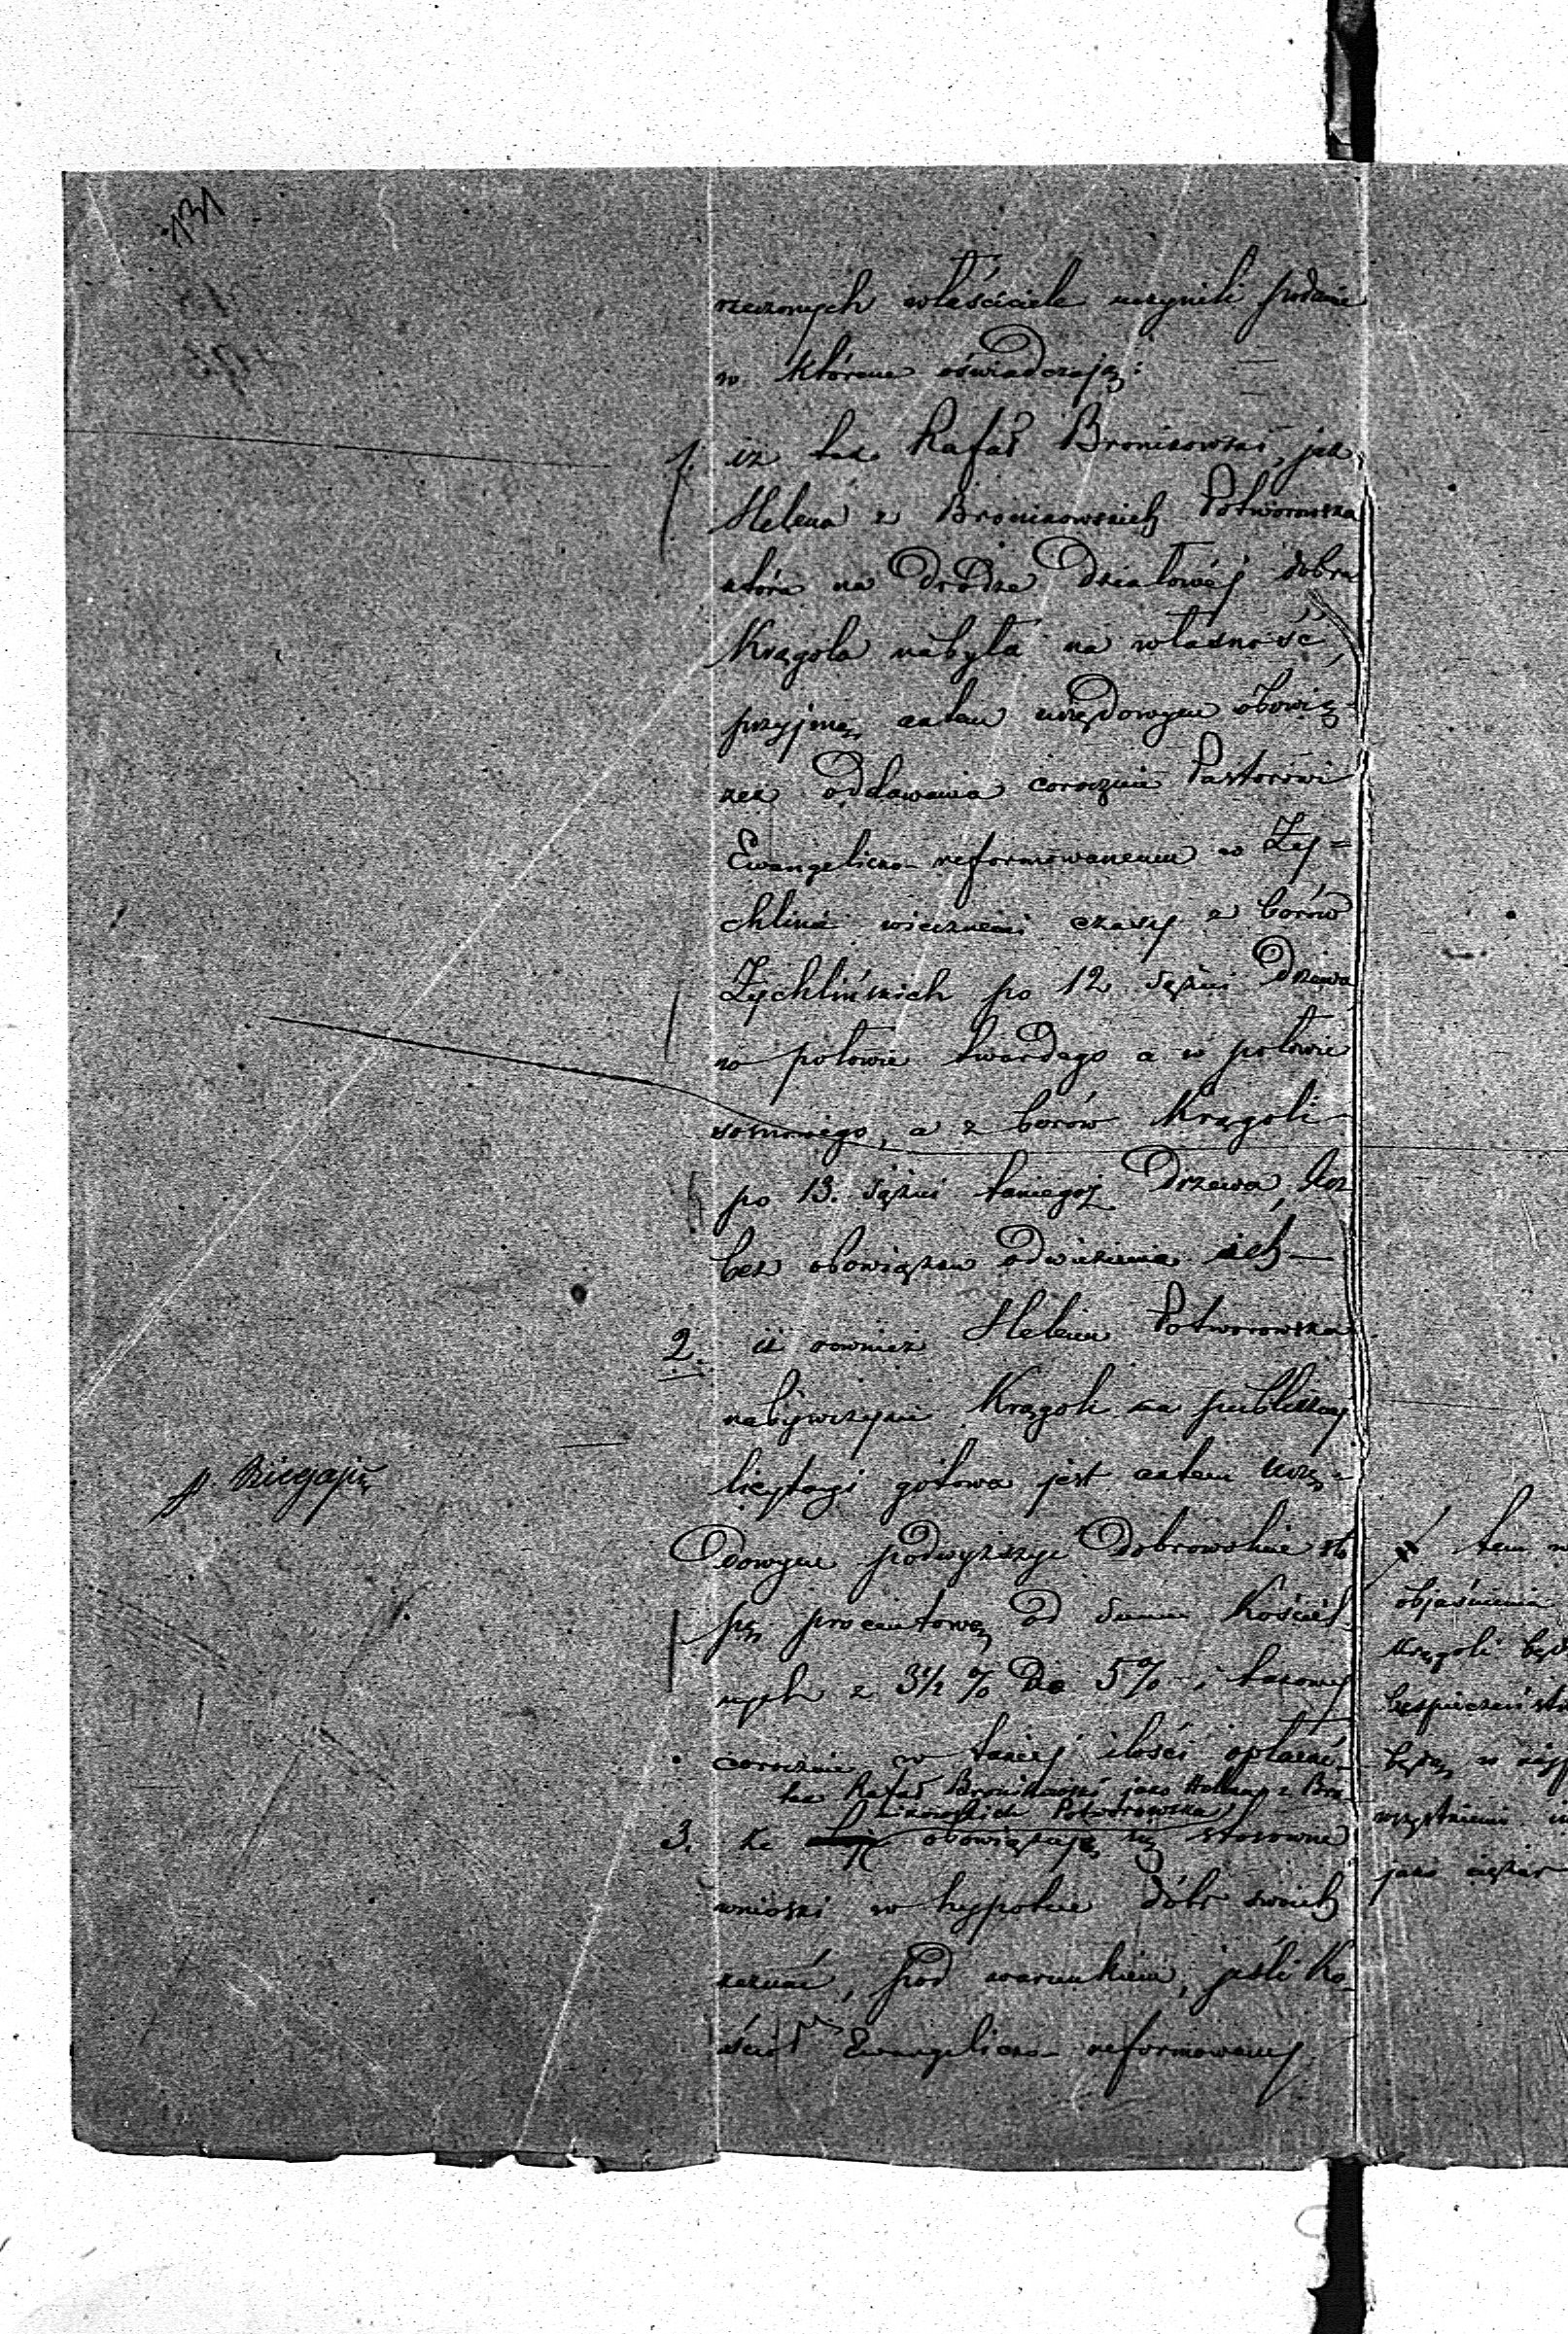 131
rzeczonych właściciele uczynili podanie
w którem oświadczają:
1. iż tak Rafał Bronikowski, jak
Helena z Bronikowskich Potworowska
która na drodze działowéj dobra
Krągola nabyła na własność,
przyjmą aktem urzędowym obowią-
zek oddawania corocznie Pastorowi
Ewangelicko-reformowanemu w Ży=
chlinie wiecznemi czasy z borów
Żychlińskich po 12 sążni drzewa
w połowie twardego a w połowie
sosnowego, a z borów Krągoli
po 13. sążni takiegoż drzewa, lecz
bez obowiązku odwiezienia ich —
2. iż rownież Helena Potworowska
nabywczyni Krągoli na publiczney
licytacyi gotowa jest aktem urzę=
dowym podwyższyć dobrowolnie sto
pę procentową od summ Kościel
nych z 3½ % do 5% i takowy
corocznie w takiej ilości opłacać
tak Rafał Bronikowski jako Helena z Bro
nikowskich Potworowska
3. że obowiązują się stosowne
wnioski w hypotece dóbr swoich
zeznać, pod warunkiem, jeśli Ko
ściół Ewangelicko-reformowany
p. Biegając
tem w
objaśnienia
Krągoli będ
bezpieczeństw
będą w
wszystkiemi
jako ciężar